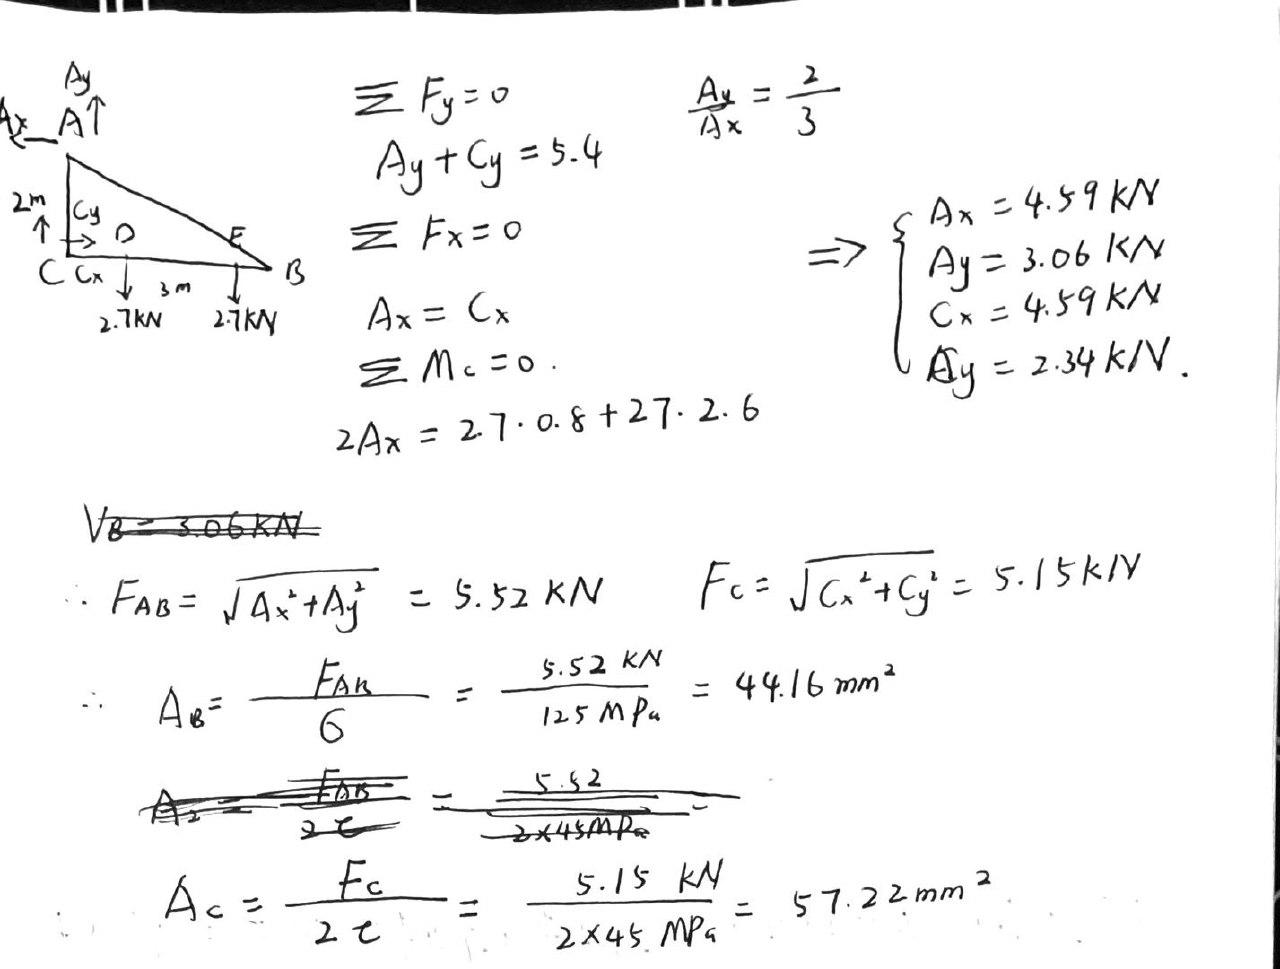 Ay
Ax A
2m
Cy
D
E
C Cx
3m
B
2.7KN 2.7KN
Σ Fy = 0
Ay + Cy = 5.4
Σ Fx = 0
Ax = Cx
Σ Mc = 0.
2Ax = 2.7 · 0.8 + 27 · 2.6
Ay/Ax = 2/3
⇒ { Ax = 4.59 KN
Ay = 3.06 KN
Cx = 4.59 KN
Ay = 2.34 KN.
VB = 3.06KN
∴ FAB = √(Ax² + Ay²) = 5.52 KN Fc = √(Cx² + Cy²) = 5.15 KN
∴ AB = FAB/6 = 5.52 KN/125 MPa = 44.16 mm²
A2 = FAB/2τ = 5.52/2×45MPa =
Ac = Fc/2τ = 5.15 KN/2×45 MPa = 57.22 mm²